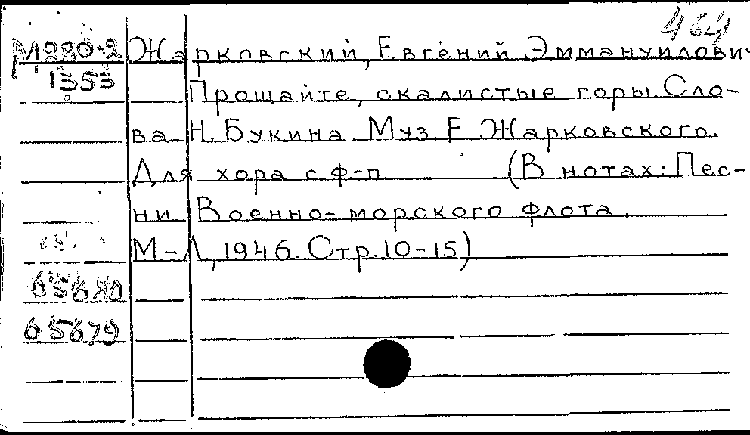 464
М280-2 Жарковский, Евгений Эммануилович
1353
Прощайте, скалистые горы. Сло-
ва Н. Букина. Муз. Е. Жарковского.
Для хора с ф-п (В нотах: Пес-
ни Военно-морского флота.
М-Л, 1946. Стр. 10-15)
65680
65679